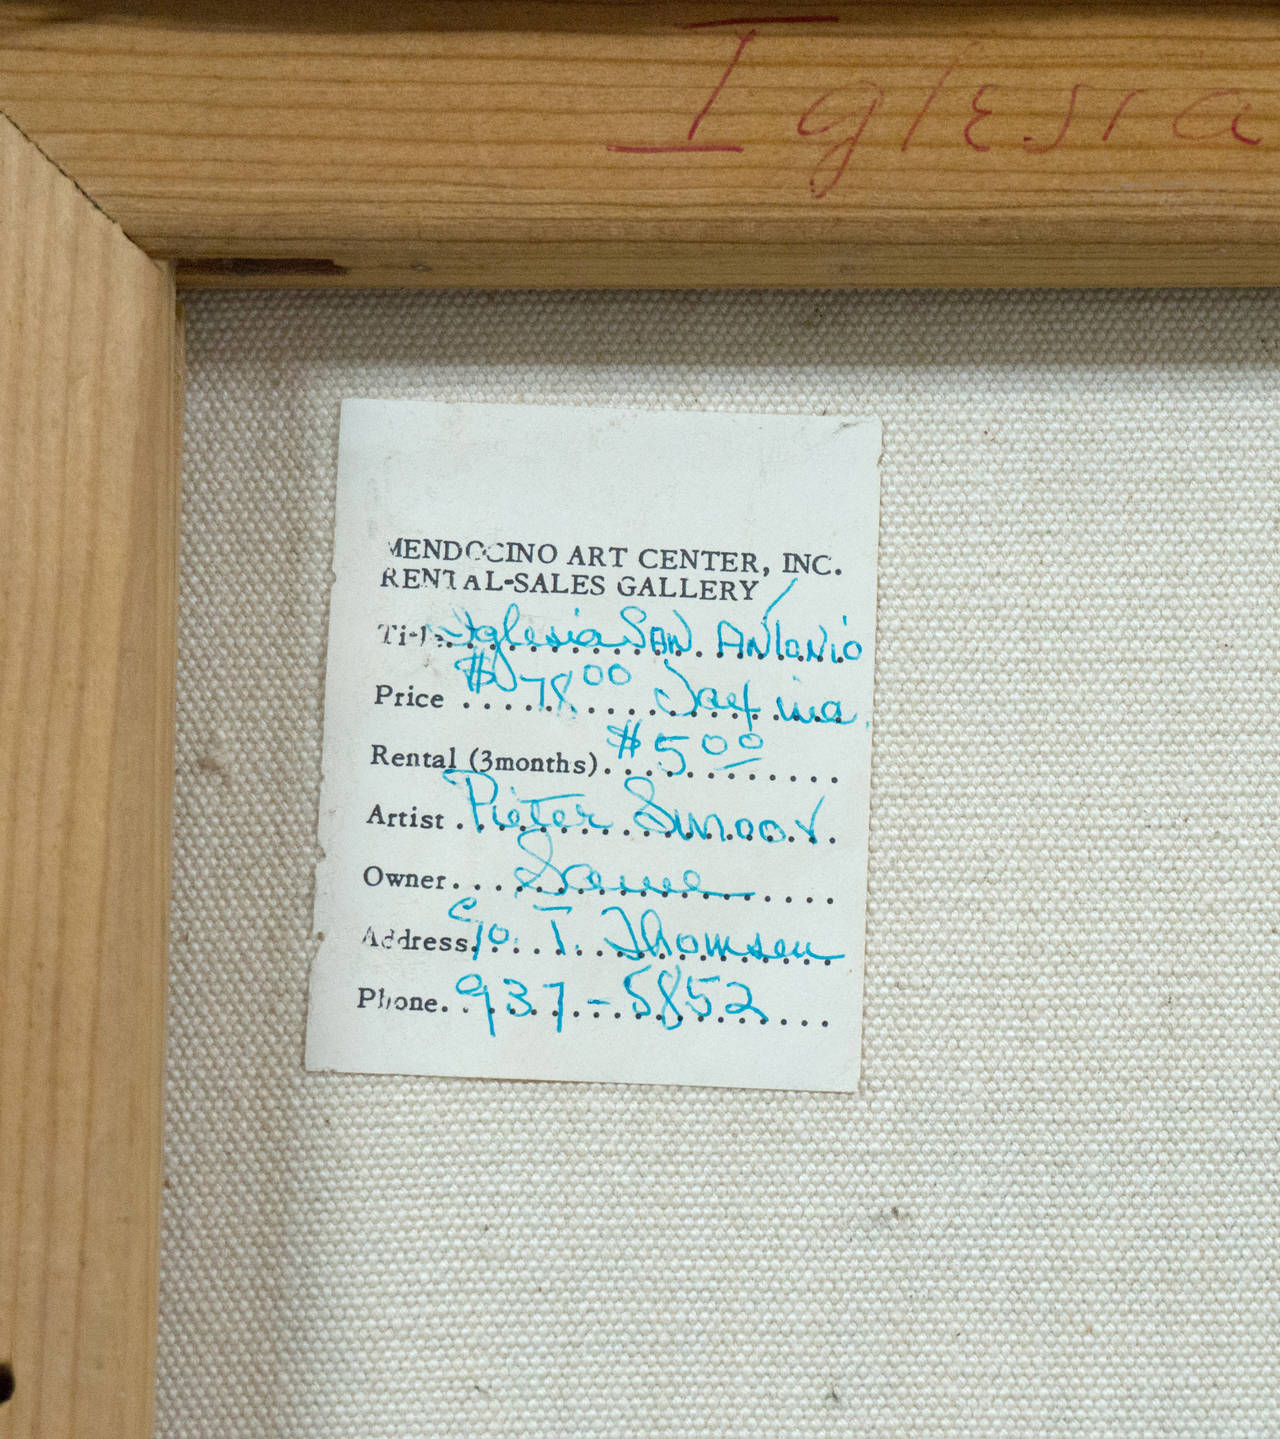 Iglesia
MENDOCINO ART CENTER, INC.
RENTAL-SALES GALLERY
Title Iglesia SAN ANTONIO
Price $ 78.00
Rental (3months) $5.00
Artist Pieter
Owner Same
Address c/o T. Thomsen
Phone 937-5852